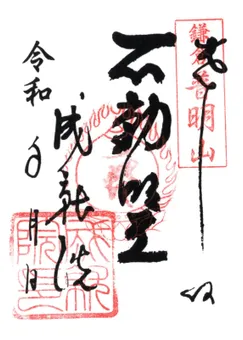 鎌倉普明山
不動明王
成就院
令和 年 月 日